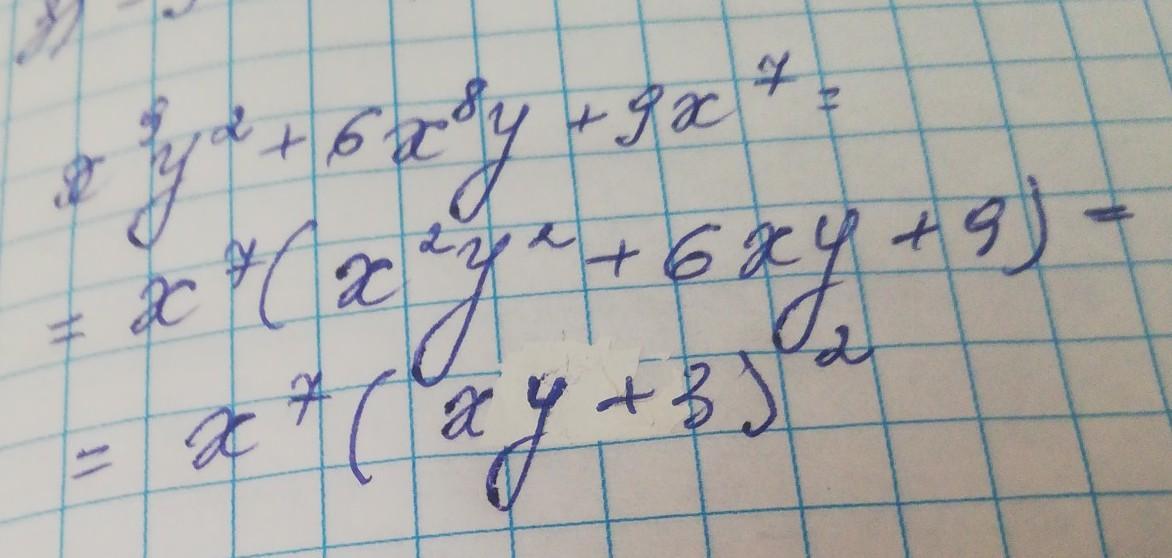 x⁹y² + 6x⁸y + 9x⁷ =
= x⁷(x²y² + 6xy + 9) =
= x⁷(xy + 3)²